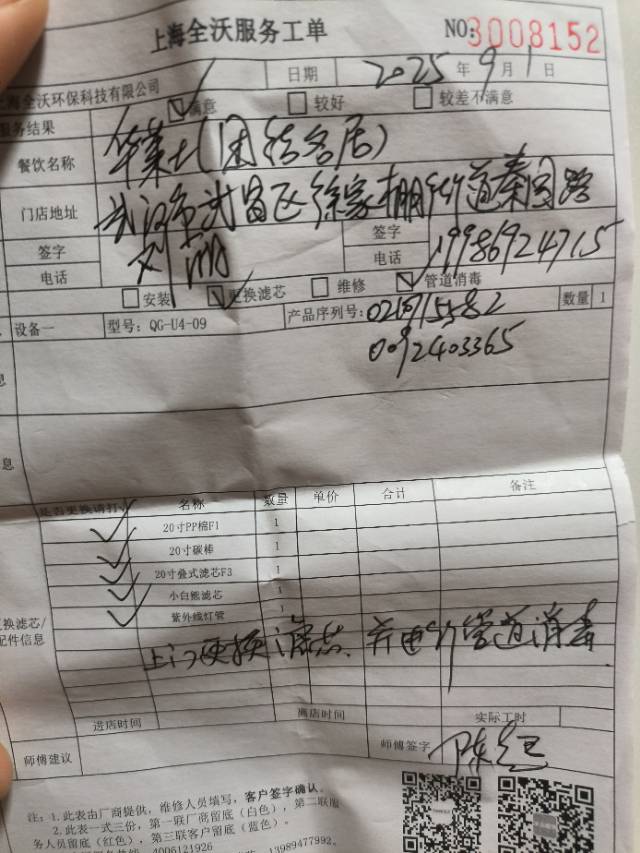 上海全沃服务工单 NO:3008152
上海全沃环保科技有限公司 日期 2025年9月1日
服务结果 满意 较好 较差不满意
餐饮名称 华莱士(团结名居)
门店地址 武汉市武昌区徐家棚街道秦园路
签字 签字
电话 电话 19986924715
安装 更换滤芯 维修 管道消毒
设备一 型号: QG-U4-09 产品序列号: 数量 1
0092403365
息
信息
是否更换请打 名称 数量 单价 合计 备注
20寸PP棉F1 1
20寸碳棒 1
20寸叠式滤芯F3 1
小白熊滤芯 1
紫外线灯管 1
更换滤芯/
配件信息
上门更换滤芯、并进行管道消毒
进店时间 离店时间 实际工时
师傅建议 师傅签字
注: 1.此表由厂商提供,维修人员填写,客户签字确认。
2.此表一式三份,第一联厂商留底(白色),第二联服
务人员留底(红色),第三联客户留底(蓝色)。
4006121926 13989477992.